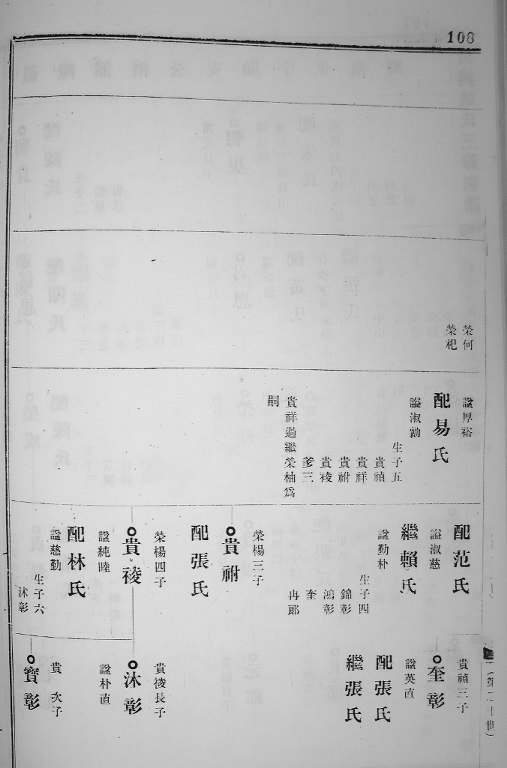 108
榮何
榮杞
諡厚裕
配易氏
諡淑勤
生子五
貴禎
貴祥
貴祔
貴祾
爹三
貴祥過繼榮柚爲
嗣
配范氏
諡淑慈
繼賴氏
諡勤朴
生子四
錦彰
鴻彰
奎
冉郎
榮楊三子
貴祔
配張氏
榮楊四子
貴祾
諡純睦
配林氏
諡慈勤
生子六
沐彰
貴禎三子
奎彰
諡英直
配張氏
繼張氏
貴祾長子
沐彰
諡朴直
貴 次子
寳彰